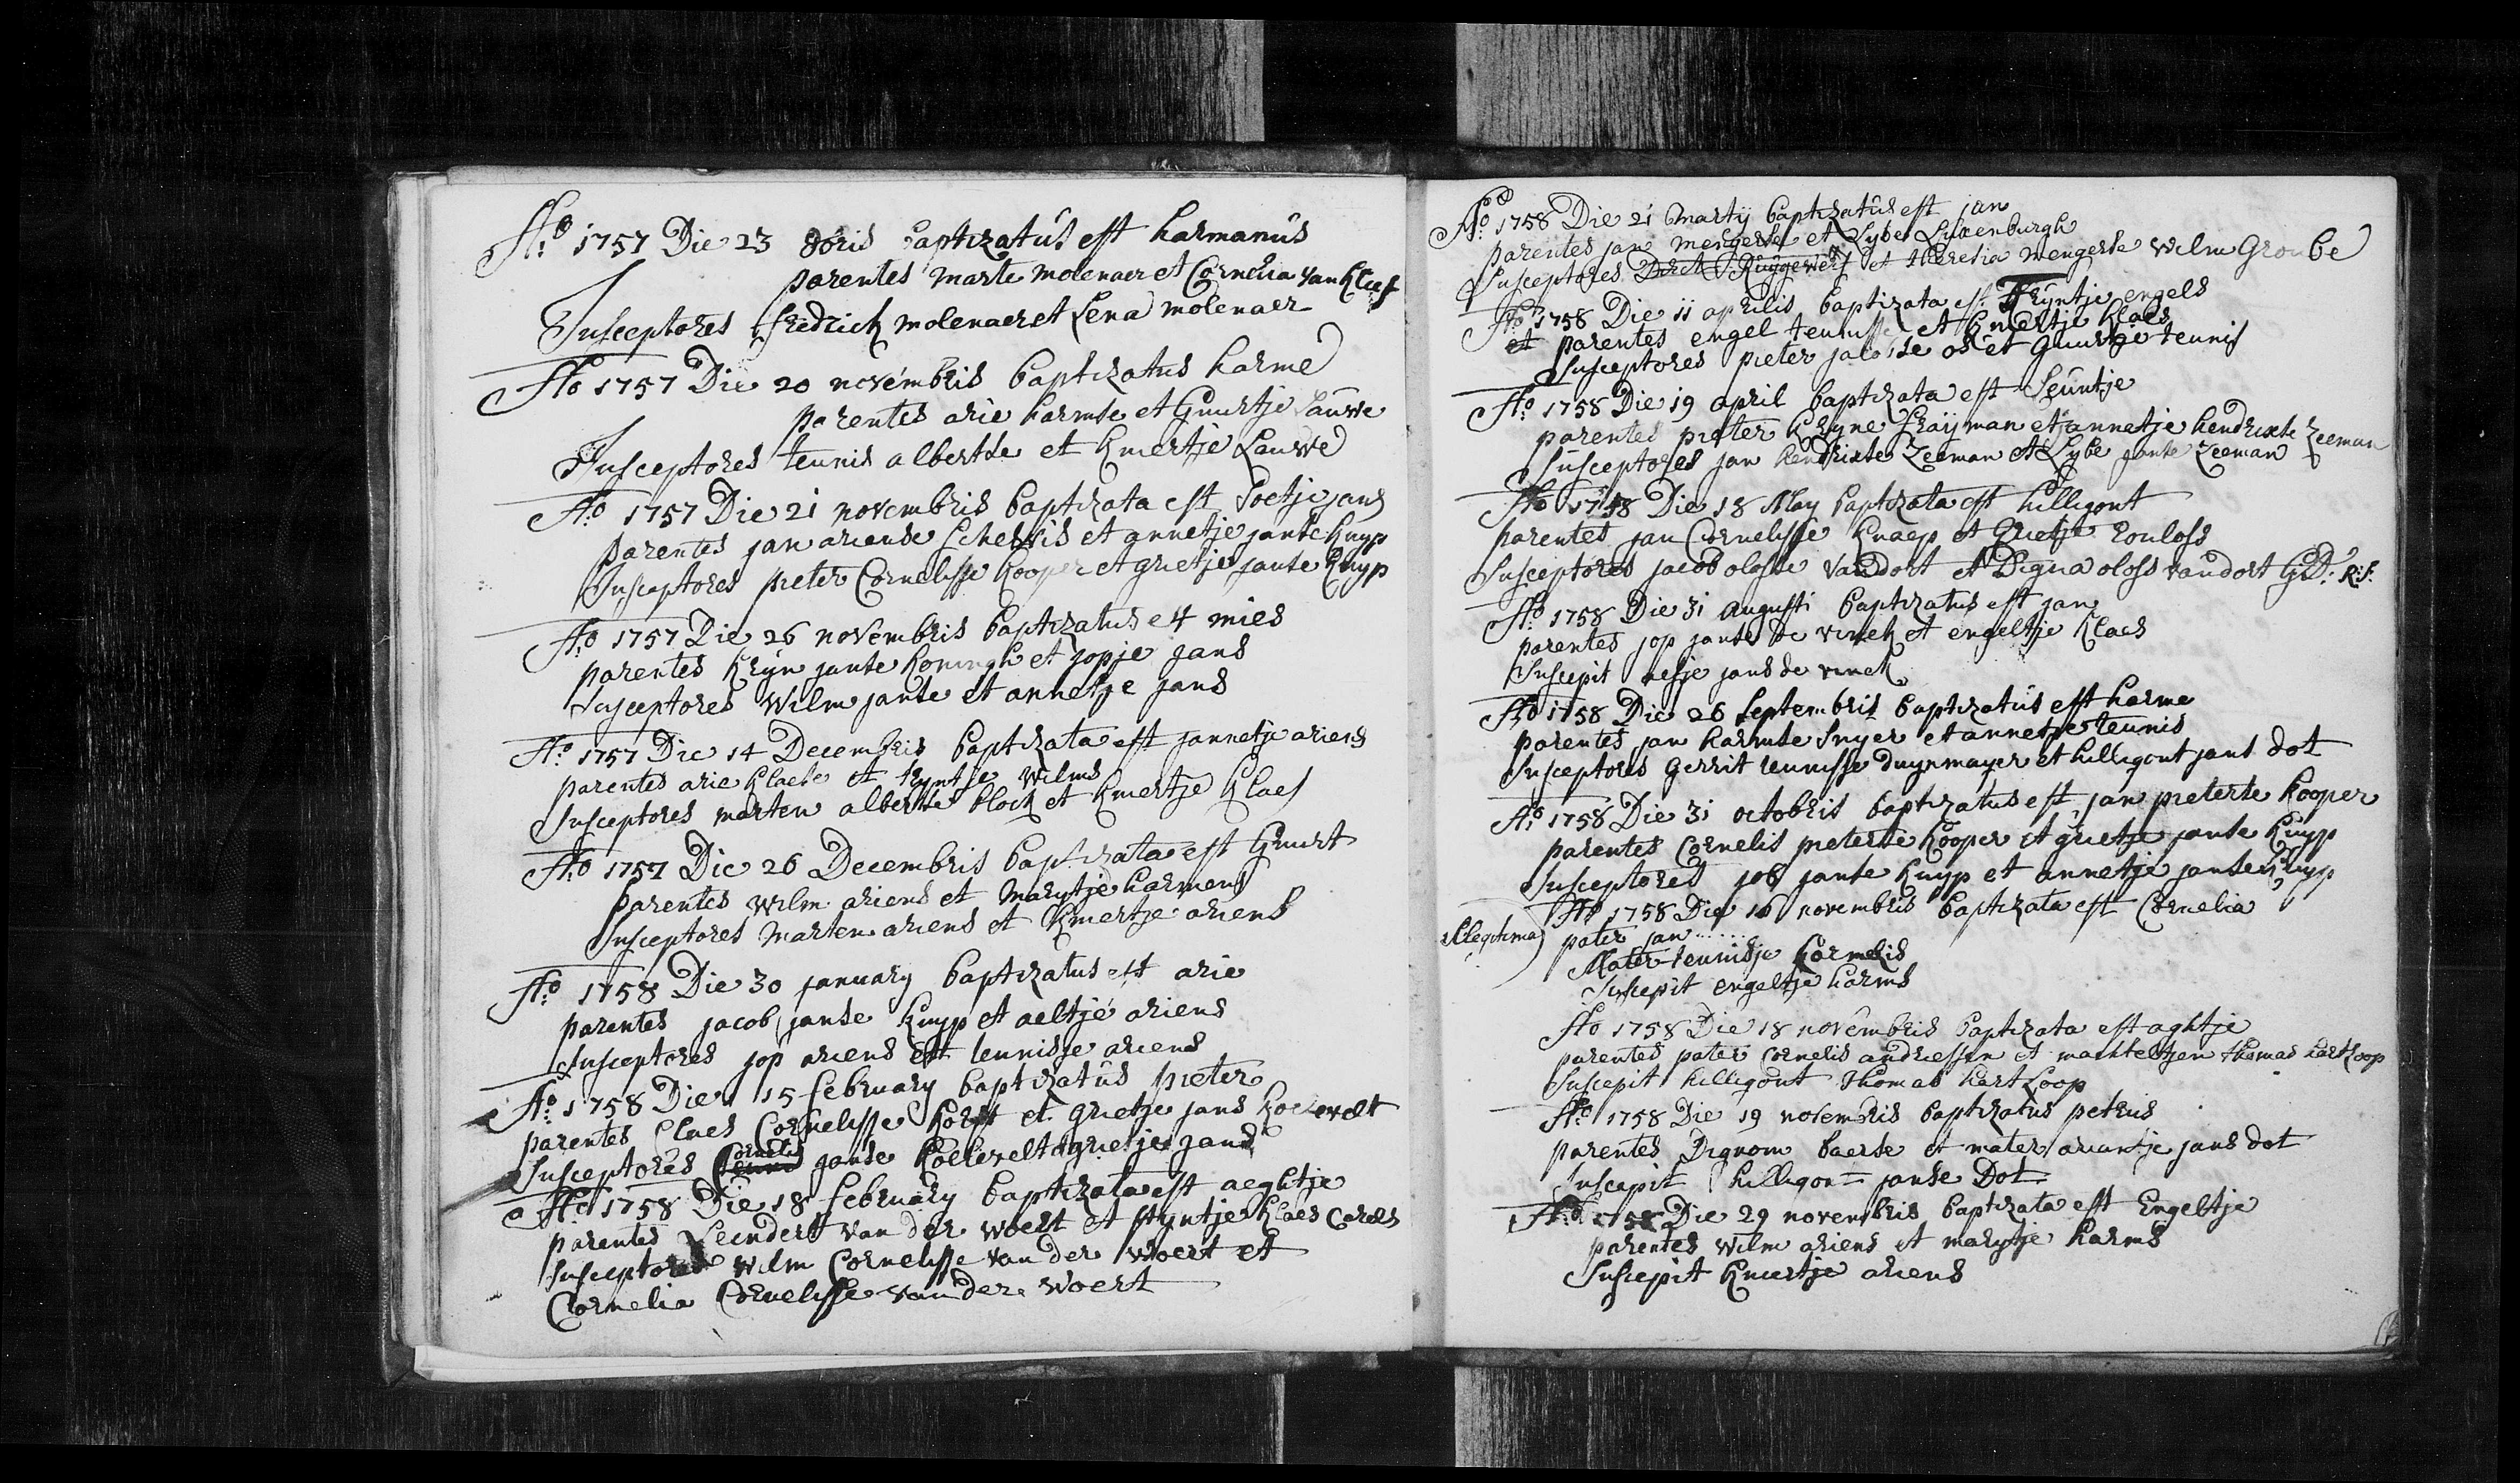 Ao 1757 Die 23 8bris baptizatus est harmanus
parentes marte molenaer et Cornelia van Kleef
Susceptores fredrick molenaer et Lena molenaer
Ao 1757 Die 20 novembris baptizatus harme
parentes arie harmse et Guurtje Lauwe
Susceptores teunis albertse et Kneertje Lauwe
Ao 1757 Die 21 novembris baptizata est Soetje jans
parentes jan ariense Schelvis et annetje janse Kuyp
Susceptores pieter Cornelisse Kooper et grietje janse Kuyp
Ao 1757 Die 26 novembris baptizatus est mies
parentes Kryn janse Koningh et jopje jans
Susceptores Wilm janse et annetje jans
Ao 1757 Die 14 Decembris baptizata est jannetje ariens
parentes arie Klaese et tryntje Wilms
Susceptores marten albertse block et Kneertje Klaes
Ao 1757 Die 26 Decembris baptizata est Guurt
parentes Wilm ariens et Marytje harmens
Susceptores Marten ariens et Kneertje ariens
Ao 1758 Die 30 january baptizatus est arie
parentes jacob janse Kuyp et aeltje ariens
Susceptores jop ariens et teunisje ariens
Ao 1758 Die 15 february baptizatus pieter
parentes Claes Cornelisse et grietje jans
Susceptores Cornelis janse Koelevelt grietje jans
Ao 1758 Die 18 february baptizata est aeghtje
parentes Leendert van der woert et styntje Klaes
Susceptores Wilm Cornelisse van der woert et
Cornelia Cornelisse van der woert
Ao 1758 Die 21 Martij baptizatus est jan
parentes jan mengerse et Lybe Luxenburgh
Susceptores Derck Ruygewerf et Theresia mengerse wilm Groube
Ao 1758 Die 11 aprilis baptizata est Tryntje engels
et parentes engel teunisse et Kneertje Klaes
Susceptores pieter jacobse os et Guurtje teunis
Ao 1758 Die 19 april baptizata est Leuntje
parentes pieter Kryne et annetje hendrixse Zeeman
Susceptores jan hendrixse Zeeman et Lybe janse Zeeman
Ao 1758 Die 18 May baptizata est hilligont
parentes jan Cornelisse Knaep et Grietje
Susceptores jacob olofse Vandort et Digna olofs vandort
Ao 1758 Die 31 augusti baptizatus est jan
parentes jop janse de vinck et engeltje Klaes
Suscepit nesje jans de vinck
Ao 1758 Die 26 Septembris baptizatus est harme
parentes jan harmse Snyer et annetje teunis
Susceptores Gerrit teunisse Duynmayer et hilligont jans dot
Ao 1758 Die 31 octobris baptizatus est jan pieterse Kooper
parentes Cornelis pieterse Kooper et grietje janse Kuyp
Susceptores job janse Kuyp et annetje janse Kuyp
Ao 1758 Die 16 novembris baptizata est Cornelia
illegitima pater jan ......
Mater teunisje Cornelis
Suscepit engeltje harms
Ao 1758 Die 18 novembris baptizata est aghtje
parentes pater Cornelis andriessen et machteltjen thomas hartloop
Suscepit hilligont Thomas hartloop
Ao 1758 Die 19 novembris baptizatus petrus
parentes Dignom baerse et mater ariantje jans dot
Suscepit hilligont janse Dot
Ao 1758 Die 29 novembris baptizata est Engeltje
parentes Wilm ariens et marytje harms
Suscepit Kneertje ariens